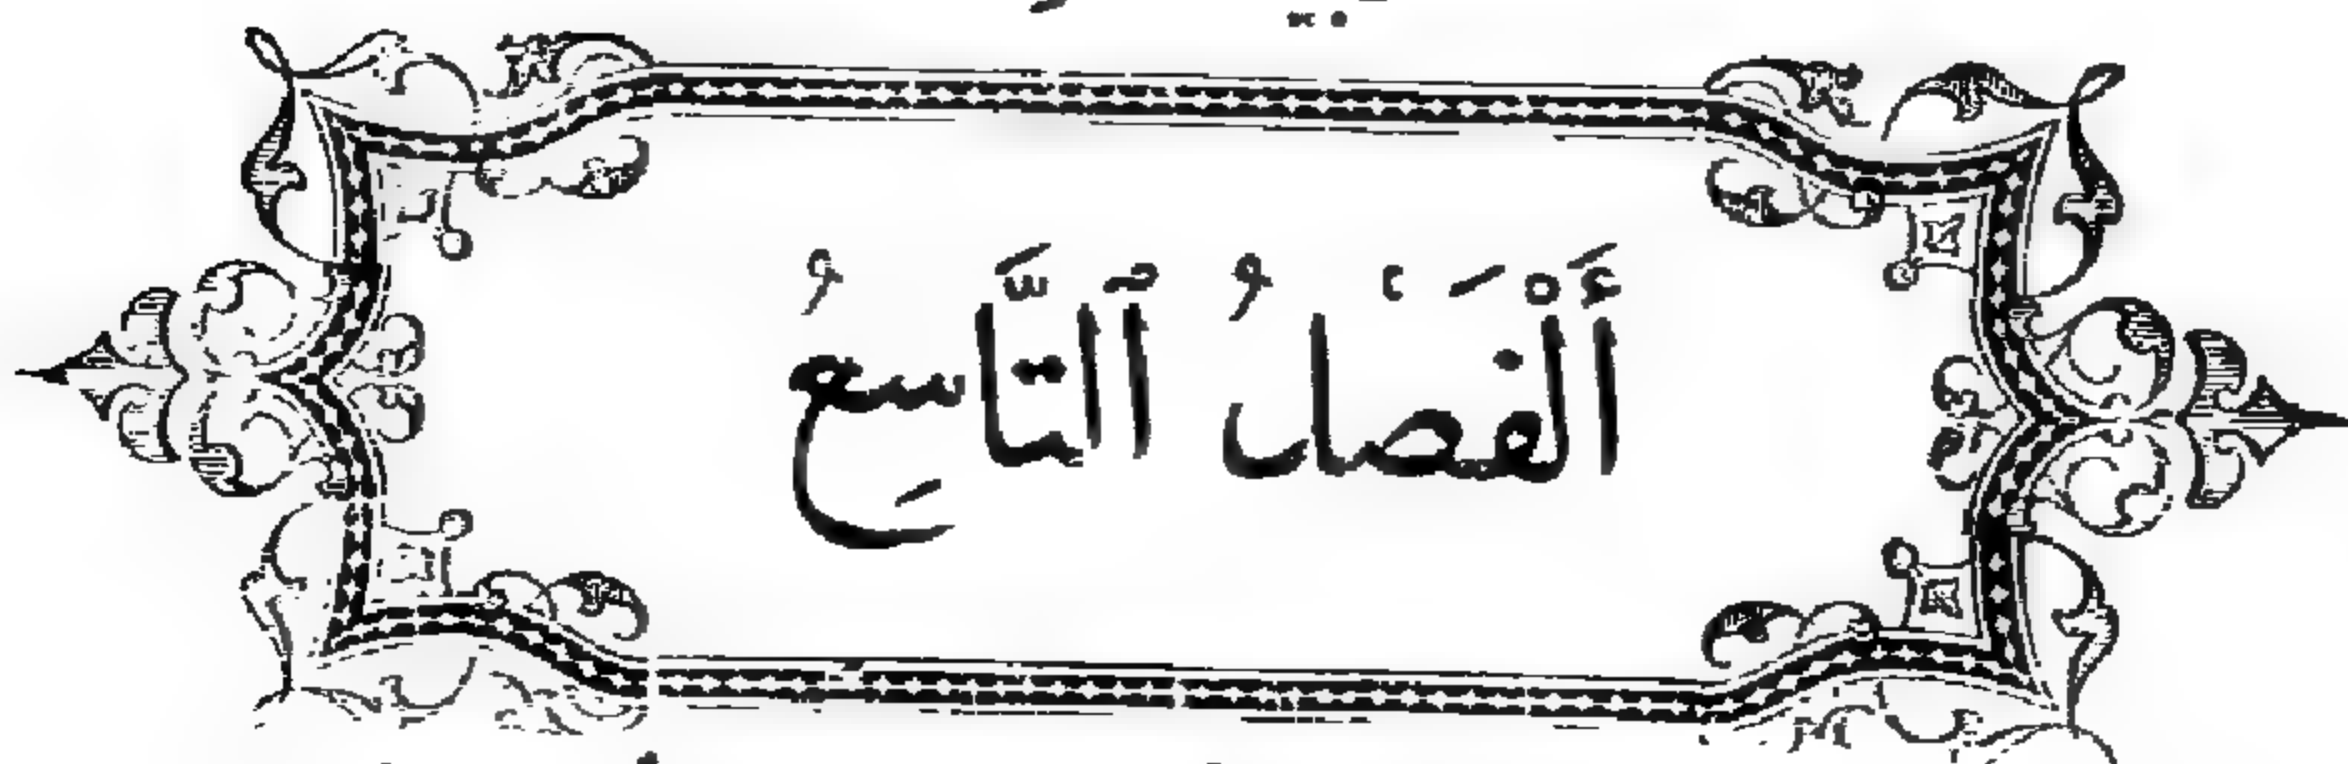 أَلْفَصْلُ ٱلتَّاسِعُ